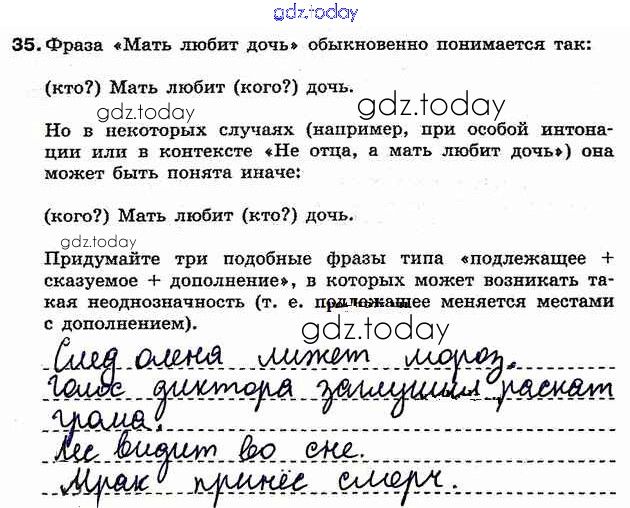 gdz.today
35. Фраза «Мать любит дочь» обыкновенно понимается так:
(кто?) Мать любит (кого?) дочь.
gdz.today
gdz.today
Но в некоторых случаях (например, при особой интона-
ции или в контексте «Не отца, а мать любит дочь») она
может быть понята иначе:
(кого?) Мать любит (кто?) дочь.
gdz.today
Придумайте три подобные фразы типа «подлежащее +
сказуемое + дополнение», в которых может возникать та-
кая неоднозначность (т. е. подлежащее меняется местами
с дополнением).
gdz.today
След оленя лижет мороз.
Голос диктора заглушил раскат
грома.
Лес видит во сне.
Мрак принёс смерч.